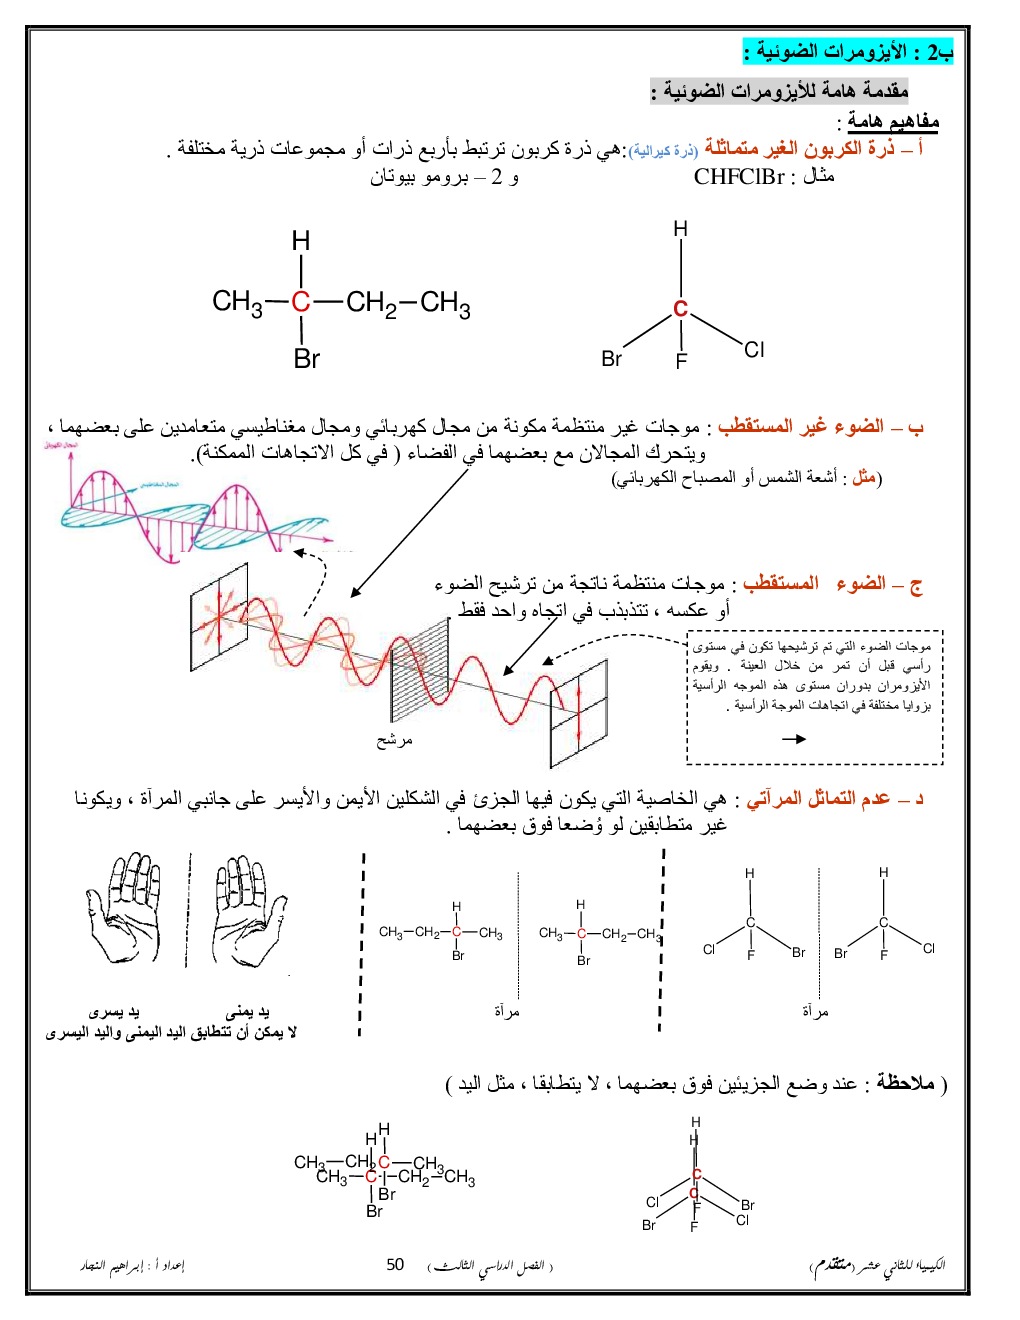 ب2 : الأيزومرات الضوئية :
مقدمة هامة للأيزومرات الضوئية :
مفاهيم هامة :
أ – ذرة الكربون الغير متماثلة (ذرة كيرالية):هي ذرة كربون ترتبط بأربع ذرات أو مجموعات ذرية مختلفة .
مثال : CHFClBr و 2 – برومو بيوتان
H
CH3 C CH2 CH3
Br
H
C
Br F Cl
ب – الضوء غير المستقطب : موجات غير منتظمة مكونة من مجال كهربائي ومجال مغناطيسي متعامدين على بعضهما ،
ويتحرك المجالان مع بعضهما في الفضاء ( في كل الاتجاهات الممكنة).
(مثل : أشعة الشمس أو المصباح الكهربائي)
المجال الكهربائي
المجال المغناطيسي
ج – الضوء المستقطب : موجات منتظمة ناتجة من ترشيح الضوء
أو عكسه ، تتذبذب في اتجاه واحد فقط
موجات الضوء التي تم ترشيحها تكون في مستوى
رأسي قبل أن تمر من خلال العينة . ويقوم
الأيزومران بدوران مستوى هذه الموجه الرأسية
بزوايا مختلفة في اتجاهات الموجة الرأسية .
مرشح
د – عدم التماثل المرآتي : هي الخاصية التي يكون فيها الجزئ في الشكلين الأيمن والأيسر على جانبي المرآة ، ويكونا
غير متطابقين لو وُضعا فوق بعضهما .
H
C
Cl F Br
H
C
Br F Cl
مرآة
H
CH3 CH2 C CH3
Br
H
CH3 C CH2 CH3
Br
مرآة
يد يمنى يد يسرى
لا يمكن أن تتطابق اليد اليمنى واليد اليسرى
( ملاحظة : عند وضع الجزيئين فوق بعضهما ، لا يتطابقا ، مثل اليد )
H
H
CH3 CH2 C CH3
CH3 C CH2 CH3
Br
Br
H
H
C
C
Cl F Br
Br F Cl
الكيمياء للثاني عشر (متقدم) ( الفصل الدراسي الثالث ) 50 إعداد أ : إبراهيم النجار